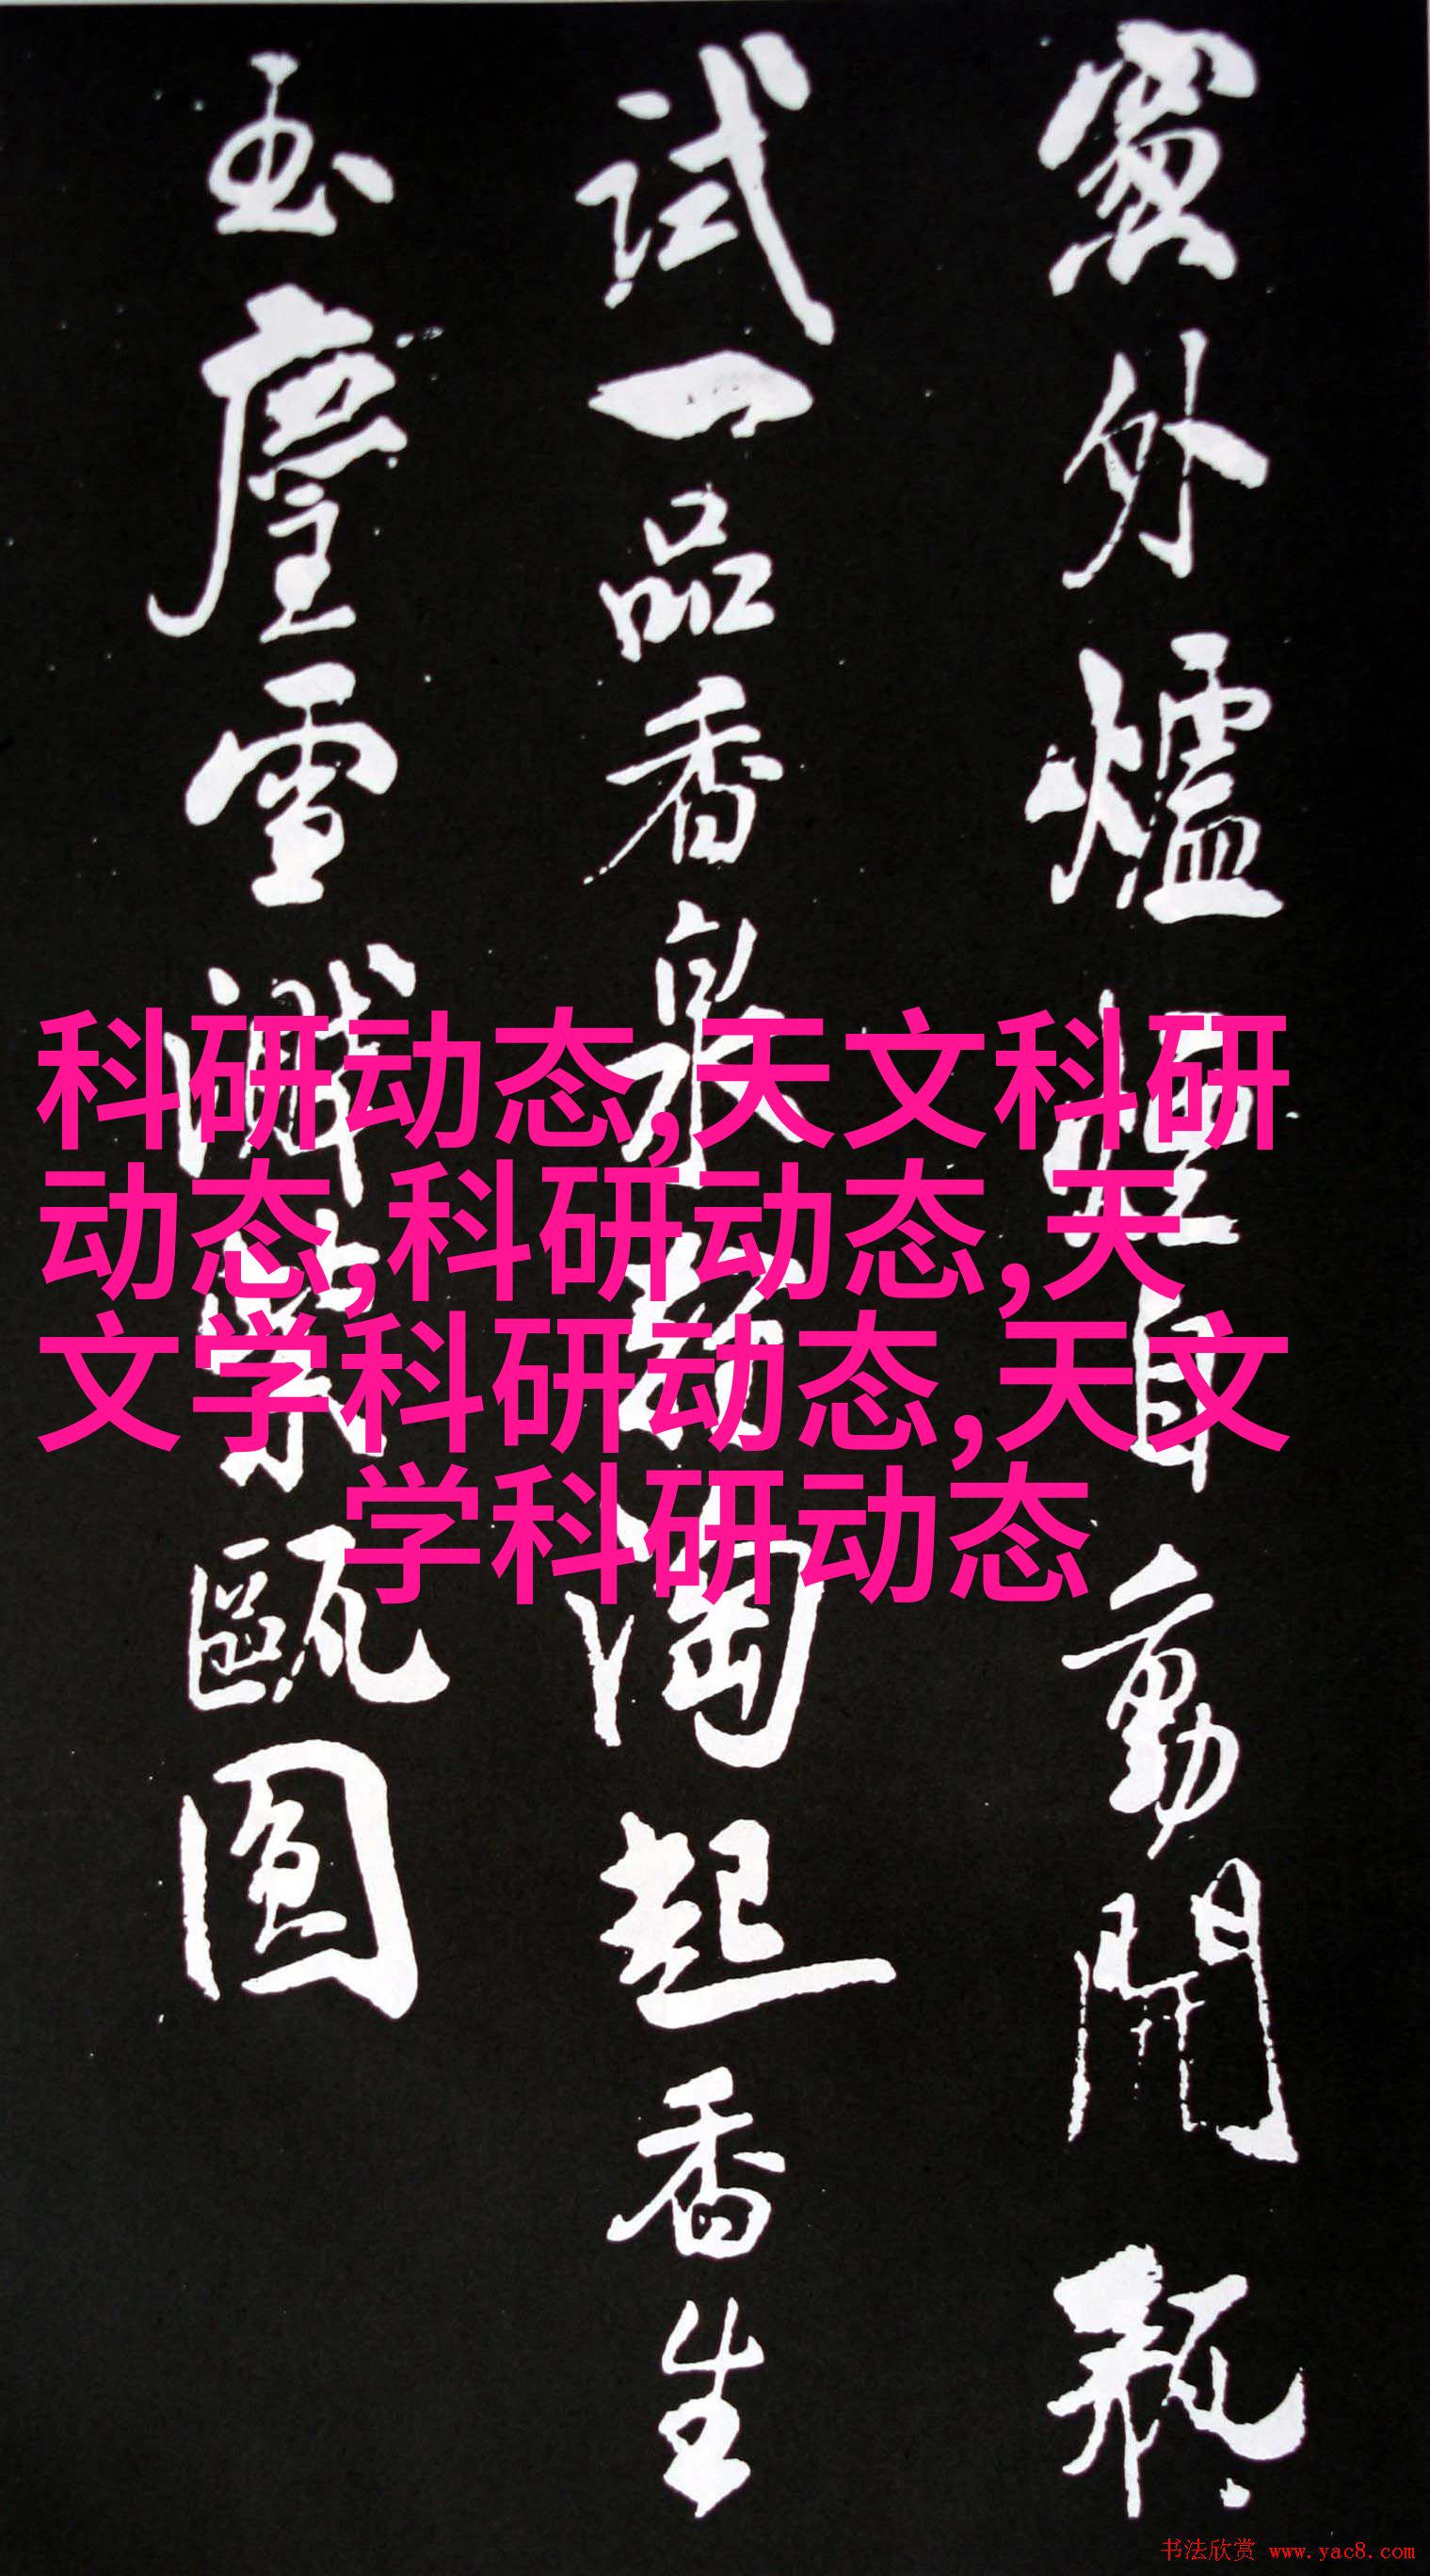 窗外爐煙自動開瓶
試一品香泉輕濤起香生
玉塵雪濺紫甌圓
科研动态,天文科研
动态,科研动态,天
文学科研动态,天文
学科研动态
书法欣赏 www.yac8.com